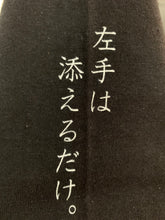 左手は
添えるだけ。